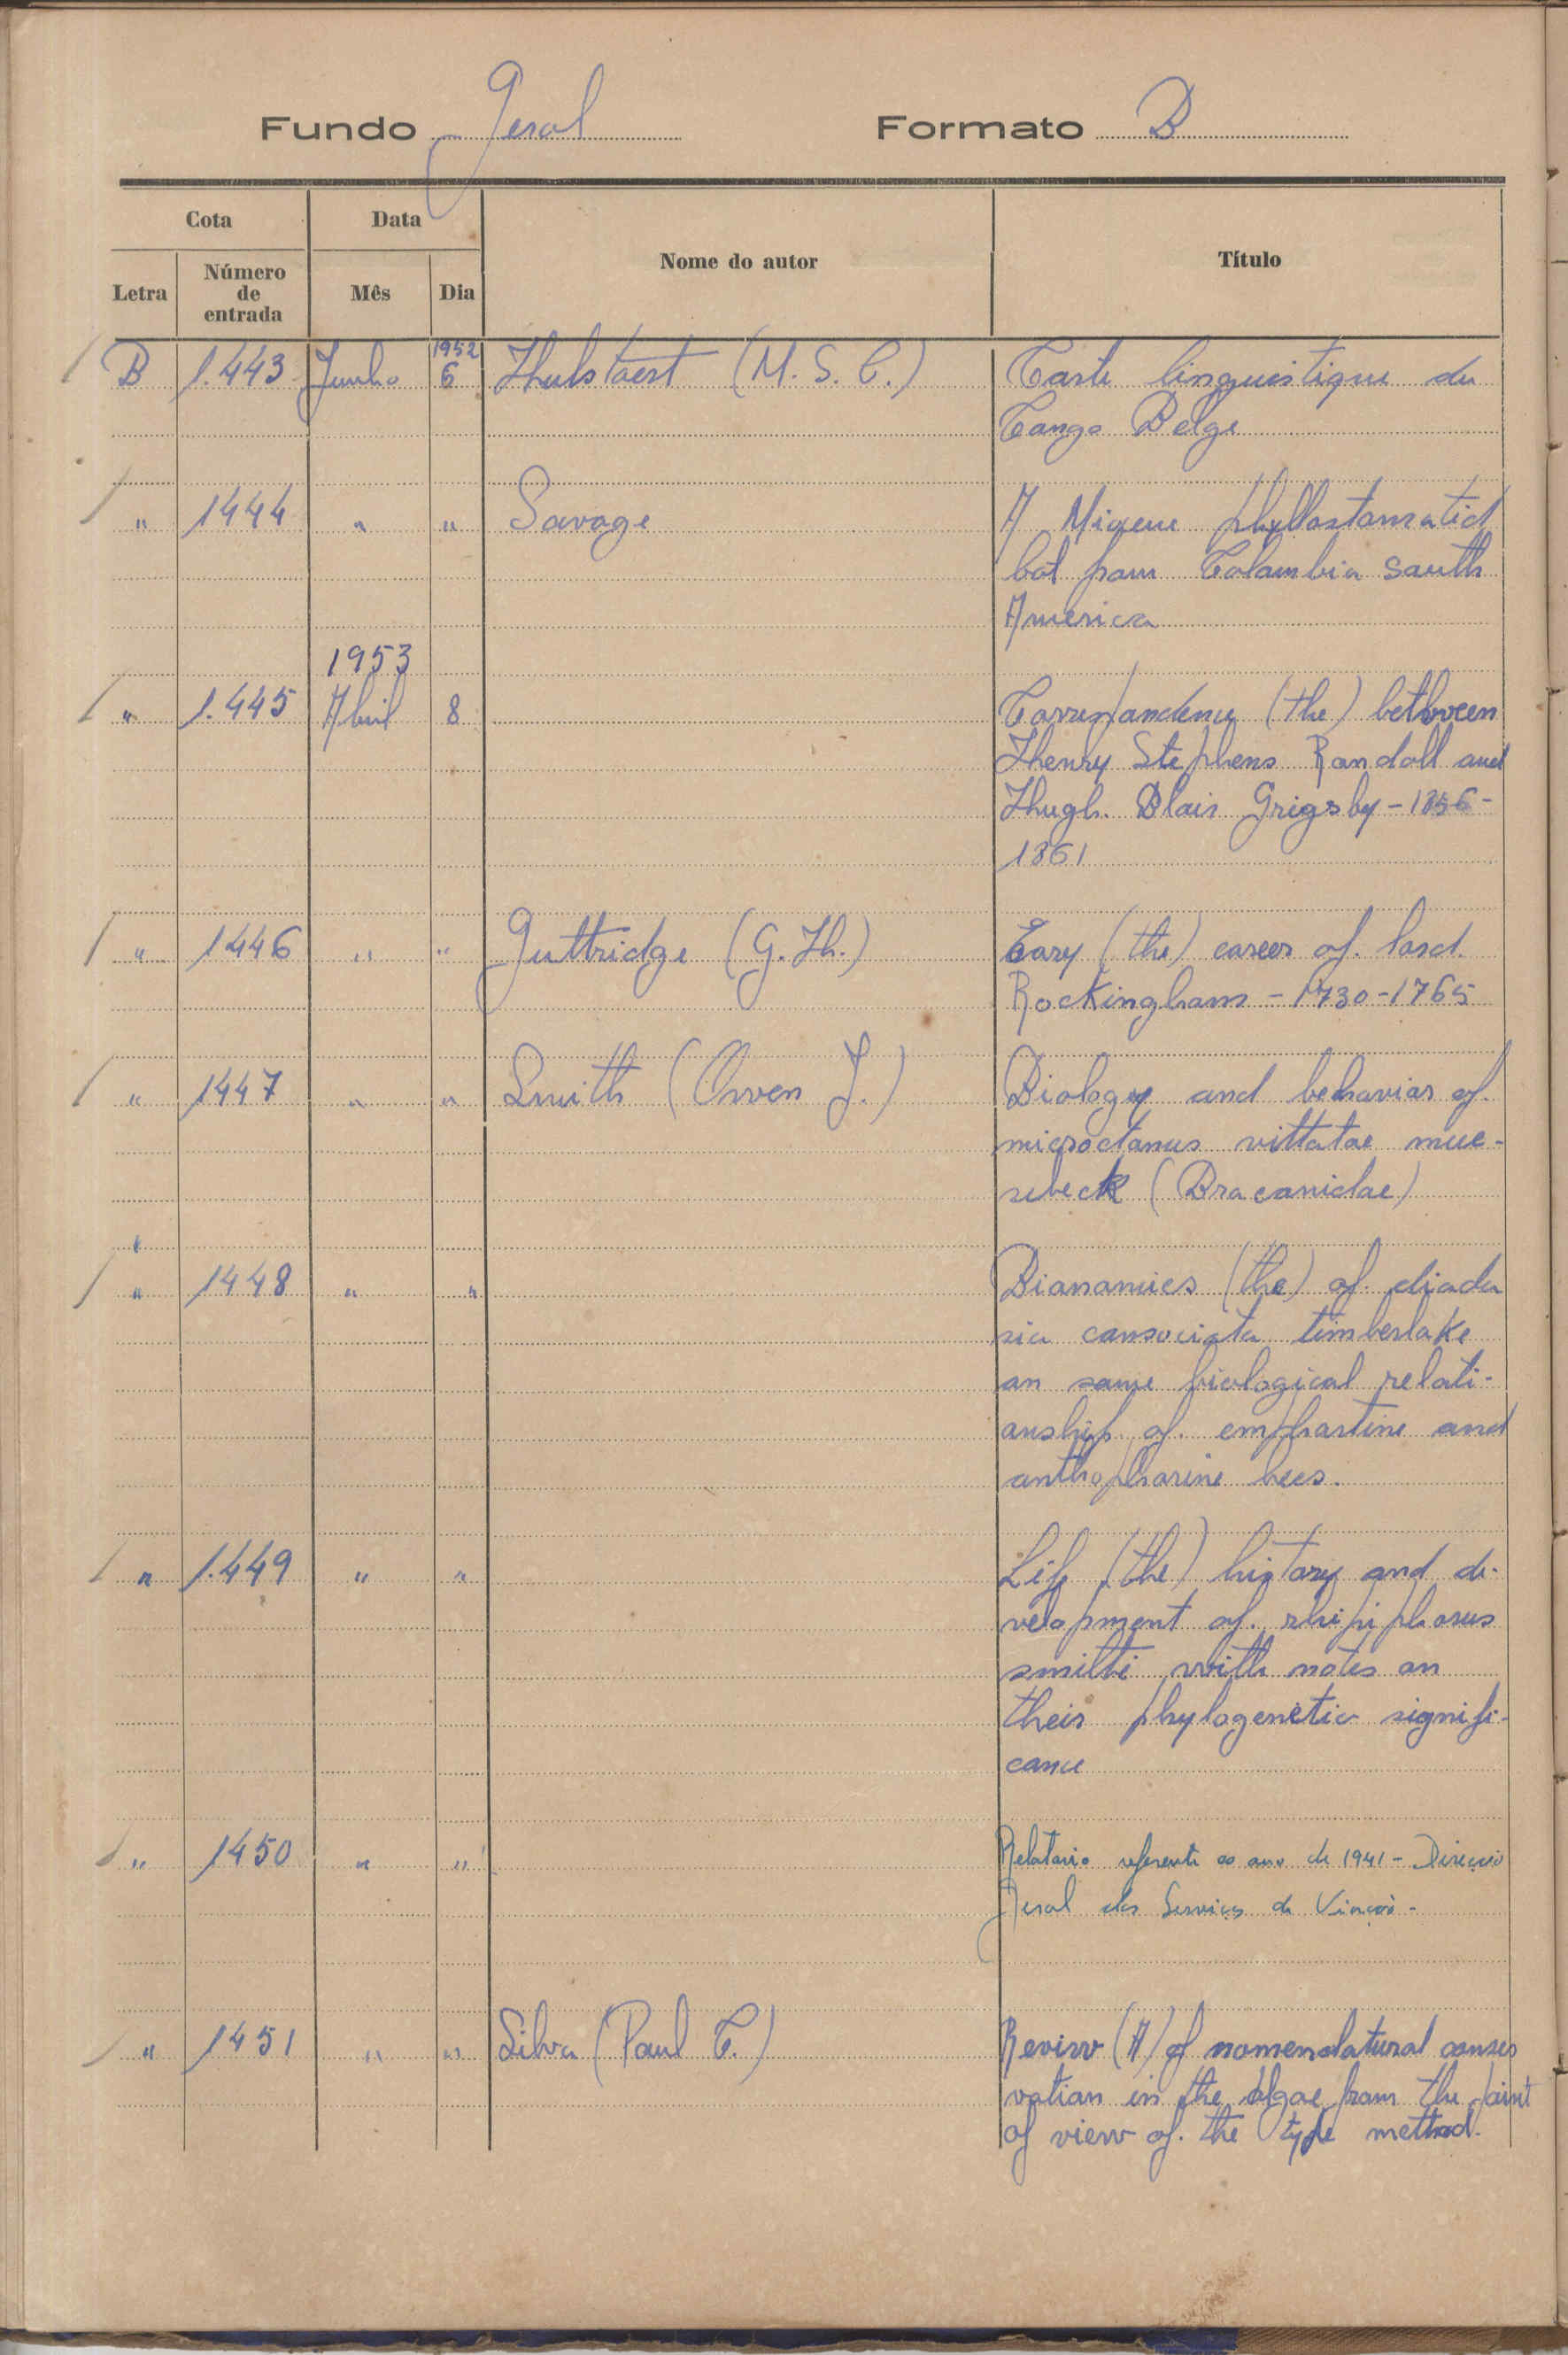 Fundo Geral Formato B
Cota Data Nome do autor Título
Letra Número de entrada Mês Dia
B 1.443 Junho 1952 6 Hulstaert (M. S. C.) Carte linguistique du
Congo Belge
" 1444 " " Savage A Miocene phyllostomatid
bat from Colombia South
America
1953
" 1.445 Abril 8 Correspondence (the) between
Henry Stephens Randall and
Hugh. Blair Grigsby - 1856 -
1861
" 1446 " " Guttridge (G. H.) Eary (the) career of. lord.
Rockingham - 1730 - 1765
" 1447 " " Smith (Owen J.) Biology and behavior of.
microctonus vittatae mue-
sebeck (Braconidae)
" 1448 " " Bionomics (the) of. diada
sia consociata timberlake
an some biological relati-
onship. of. emphorine and
anthophorine bees.
" 1.449 " " Life (the) history and de-
velopment of. rhipiphorus
smithi with notes on
their phylogenetic signifi-
cance
" 1450 " " Relatório referente ao ano de 1941 - Direcção
Geral dos Serviços de Viação -
" 1451 " " Silva (Paul C.) Review (A) of nomenclatural conser
vation in the algae from the point
of view of. the type method.